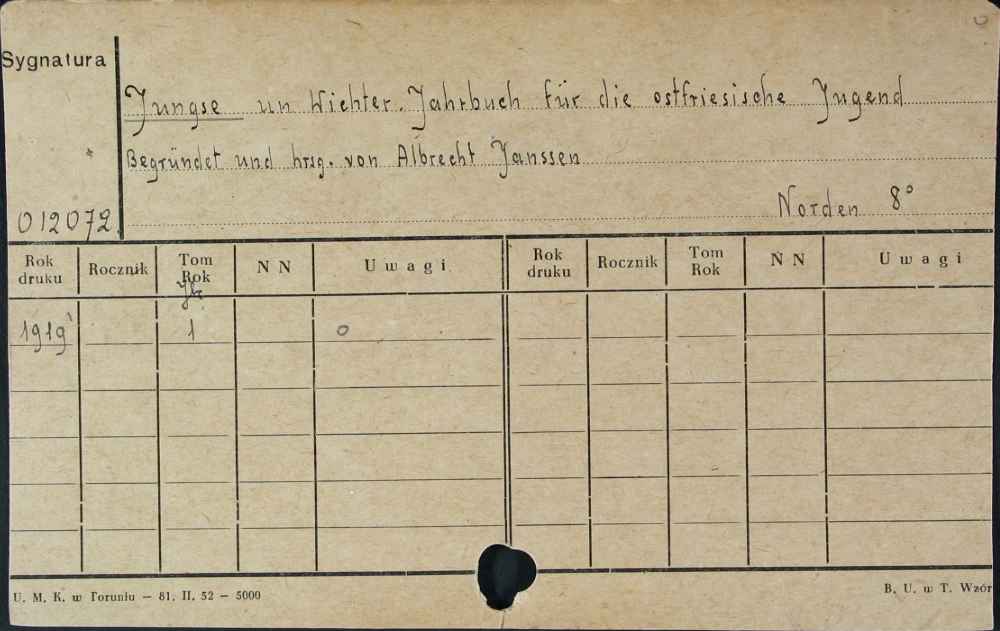 Sygnatura
Jungse un Wichter. Jahrbuch für die ostfriesische Jugend
Begründet und hrsg. von Albrecht Janssen
012072.
Norden 8°
Rok druku Rocznik Tom Rok N N Uwagi Rok druku Rocznik Tom Rok N N Uwagi
1919 1 0
U. M. K. w Toruniu — 81. II. 52 — 5000
B. U. w T. Wzór